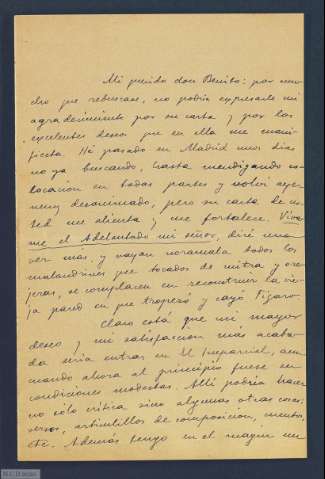 Mi querido don Benito: por mu-
cho que rebuscase, no podría expresarle mi
agradecimiento por su carta y por los
excelentes deseos que en ella me mani-
fiesta. Hé pasado en Madrid unos días
no ya buscando, hasta mendigando co-
locacion en todas partes y volví ayer
muy desanimado, pero su carta de us-
ted me alienta y me fortalece. Viva
me el Adelantado mi señor, diré una
vez mas, y vayan noramala todos los
malandrines que tocados de mitra y ore-
jeras, se complacen en reconstruir la vie-
ja pared en que tropezó y cayó Figaro.
Claro está que mi mayor
deseo y mi satisfaccion más acaba-
da sería entrar en El Imparcial, aun
cuando ahora al principio fuese en
condiciones modestas. Allí podría hacer
no sólo crítica sino algunas otras cosas:
versos, articulillos de composicion, cuentos,
etc. Además tengo en el magin un